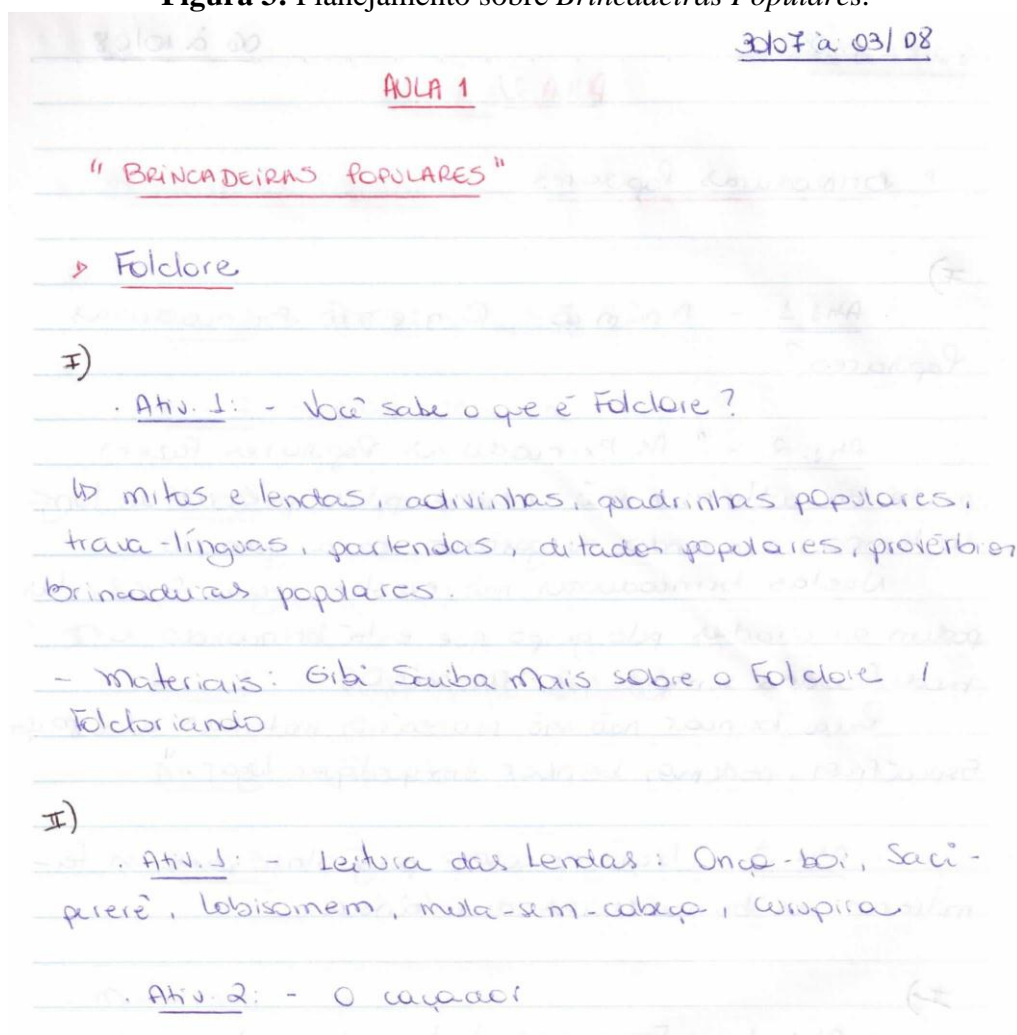 Figura 3: Planejamento sobre Brincadeiras Populares.
30/07 à 03/08
AULA 1
" BRINCADEIRAS POPULARES "
Folclore
I)
. Ativ. 1: - Você sabe o que é Folclore ?
↳ mitos e lendas, adivinhas, quadrinhas populares,
trava-línguas, parlendas, ditados populares, provérbios
brincadeiras populares.
- Materiais: Gibi Saiba Mais sobre o Folclore /
Folcloriando
II)
. Ativ. 1: - Leitura das Lendas: Onça-boi, Saci-
pererê, Lobisomem, mula-sem-cabeça, curupira
. Ativ. 2: - O caçador